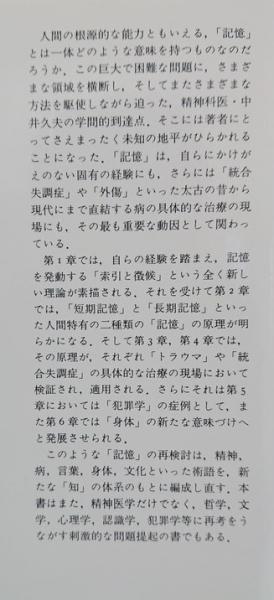 人間の根源的な能力ともいえる,「記憶」
とは一体どのような意味を持つものなのだ
ろうか. この巨大で困難な問題に, さまざ
まな領域を横断し, そしてまたさまざまな
方法を駆使しながら迫った, 精神科医・中
井久夫の学問的到達点. そこには著者にと
ってさえまったく未知の地平がひらかれる
ことになった.「記憶」は, 自らにかけが
えのない固有の経験にも, さらには「統合
失調症」や「外傷」といった太古の昔から
現代にまで直結する病の具体的な治療の現
場にも, その最も重要な動因として関わっ
ている.
第1章では, 自らの経験を踏まえ, 記憶
を発動する「索引と徴候」という全く新し
い理論が素描される. それを受けて第2章
では,「短期記憶」と「長期記憶」といっ
た人間特有の二種類の「記憶」の原理が明
らかになる. そして第3章, 第4章では,
その原理が, それぞれ「トラウマ」や「統
合失調症」の具体的な治療の現場において
検証され, 適用される. さらにそれは第5
章においては「犯罪学」の症例として, ま
た第6章では「身体」の新たな意味づけへ
と発展させられる.
このような「記憶」の再検討は, 精神,
病, 言葉, 身体, 文化といった術語を, 新
たな「知」の体系のもとに編成し直す. 本
書はまた, 精神医学だけでなく, 哲学, 文
学, 心理学, 認識学, 犯罪学等に再考をう
ながす刺激的な問題提起の書でもある.